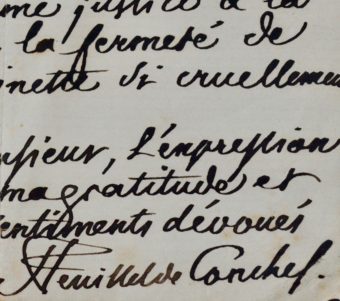 me justice à la
la fermeté de
inette si cruellemen
nsieur, l'expression
ma gratitude et
entiments dévoués
Feuillet de Conches.